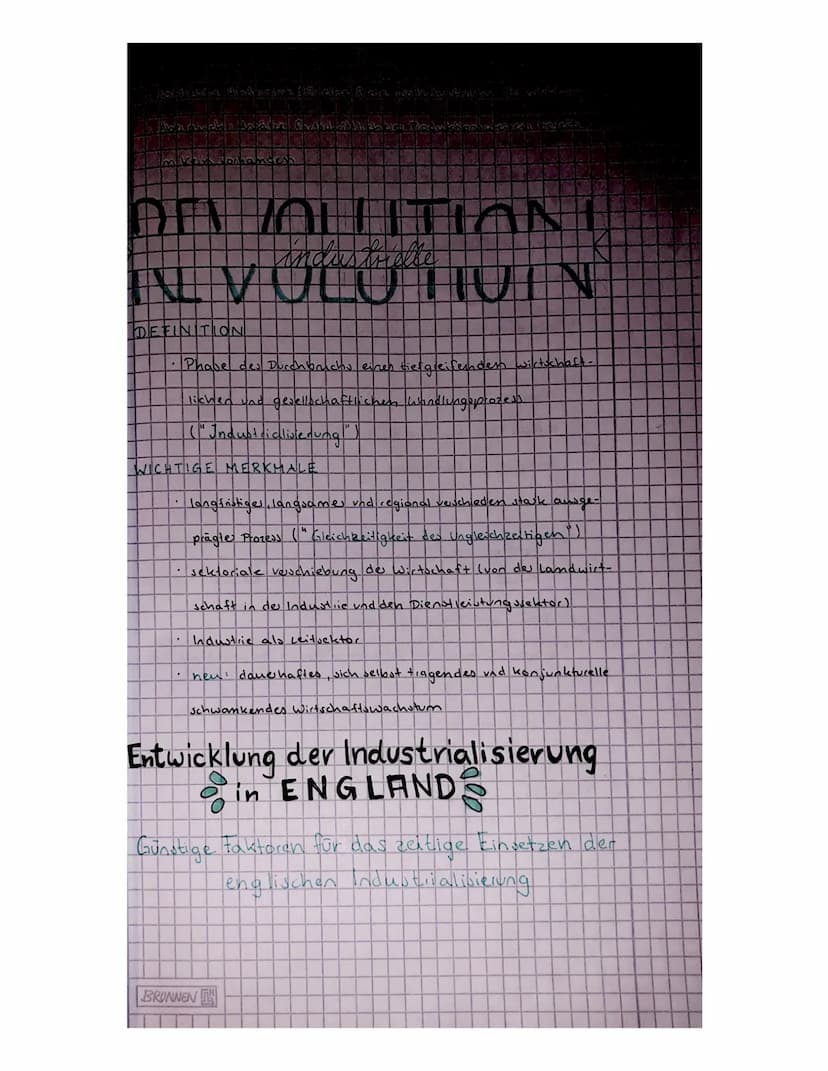 im Kern vorhanden
REVOLUTION
industrielle
DEFINITION
· Phase des Durchbruchs eines tiefgreifenden wirtschaft-
lichen und gesellschaftlichen Wandlungsprozess
("Industrialisierung")
WICHTIGE MERKMALE
· langfristiger, langsamer und regional verschieden stark ausge-
prägter Prozess ("Gleichzeitigkeit des Ungleichzeitigen")
· sektorale Verschiebung der Wirtschaft (von der Landwirt-
schaft in der Industrie und den Dienstleistungssektor)
· Industrie als Leitsektor
· neu: dauerhaftes, sich selbst tragendes und konjunkturelle
schwankendes Wirtschaftswachstum
Entwicklung der Industrialisierung
in ENGLAND
Günstige Faktoren für das zeitige Einsetzen der
englischen Industrialisierung
BRUNNEN